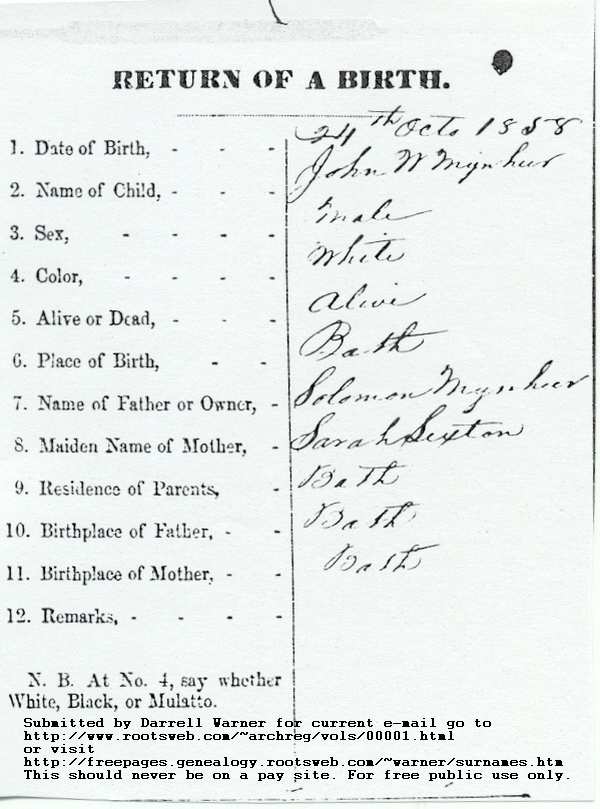 RETURN OF A BIRTH.
24th Octo 1858
1. Date of Birth, - - -
John W Mynheir
2. Name of Child, - - -
Male
3. Sex, - - - -
White
4. Color, - - - -
Alive
5. Alive or Dead, - - -
Bath
6. Place of Birth, - -
Solomon Mynheir
7. Name of Father or Owner, -
Sarah Sexton
8. Maiden Name of Mother, -
Bath
9. Residence of Parents, -
Bath
10. Birthplace of Father, - -
Bath
11. Birthplace of Mother, - -
12. Remarks, - - - -
N. B. At No. 4, say whether
White, Black, or Mulatto.
Submitted by Darrell Warner for current e-mail go to
http://www.rootsweb.com/~archreg/vols/00001.html
or visit
http://freepages.genealogy.rootsweb.com/~warner/surnames.htm
This should never be on a pay site. For free public use only.